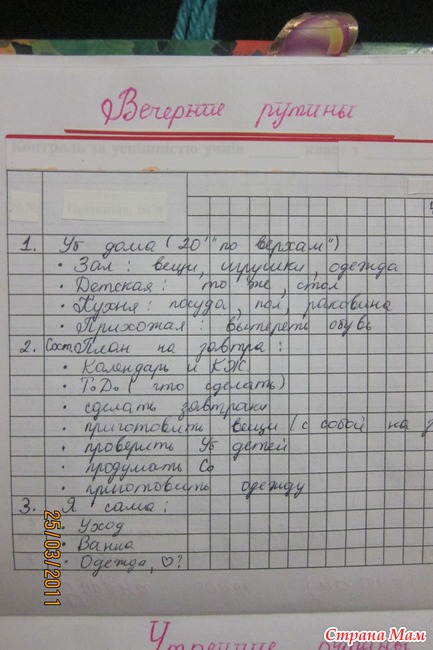 Вечерние рутины
Контроль за успішністю учнів класу з
Прізвище, ім'я
1. Уб дома (20' "по верхам")
• Зал: вещи, игрушки, одежда
• Детская: то же, стол
• Кухня: посуда, пол, раковина
• Прихожая: вытереть обувь
2. Сост План на завтра:
• Календарь и КЖ
• T.Do (что сделать)
• сделать завтраки
• приготовить вещи (с собой на
• проверить Уб детей
• продумать Co
• приготовить одежду
3. Я сама:
• Уход
• Ванна
• Одежда, ♡?
25/03/2011
Утренние рутины
Страна Мам